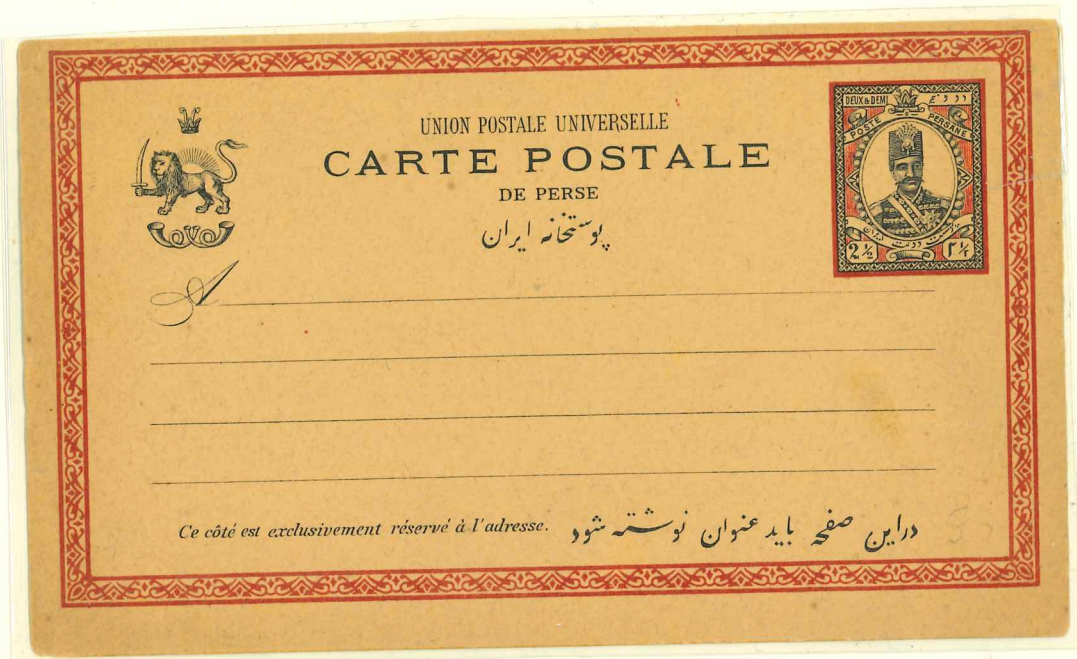 UNION POSTALE UNIVERSELLE
CARTE POSTALE
DE PERSE
پوستخانه ایران
DEUX & DEMI
POSTE PERSANE
2 ½ ۲ ½
A
Ce côté est exclusivement réservé à l'adresse.
دراین صفحه باید عنوان نوشته شود